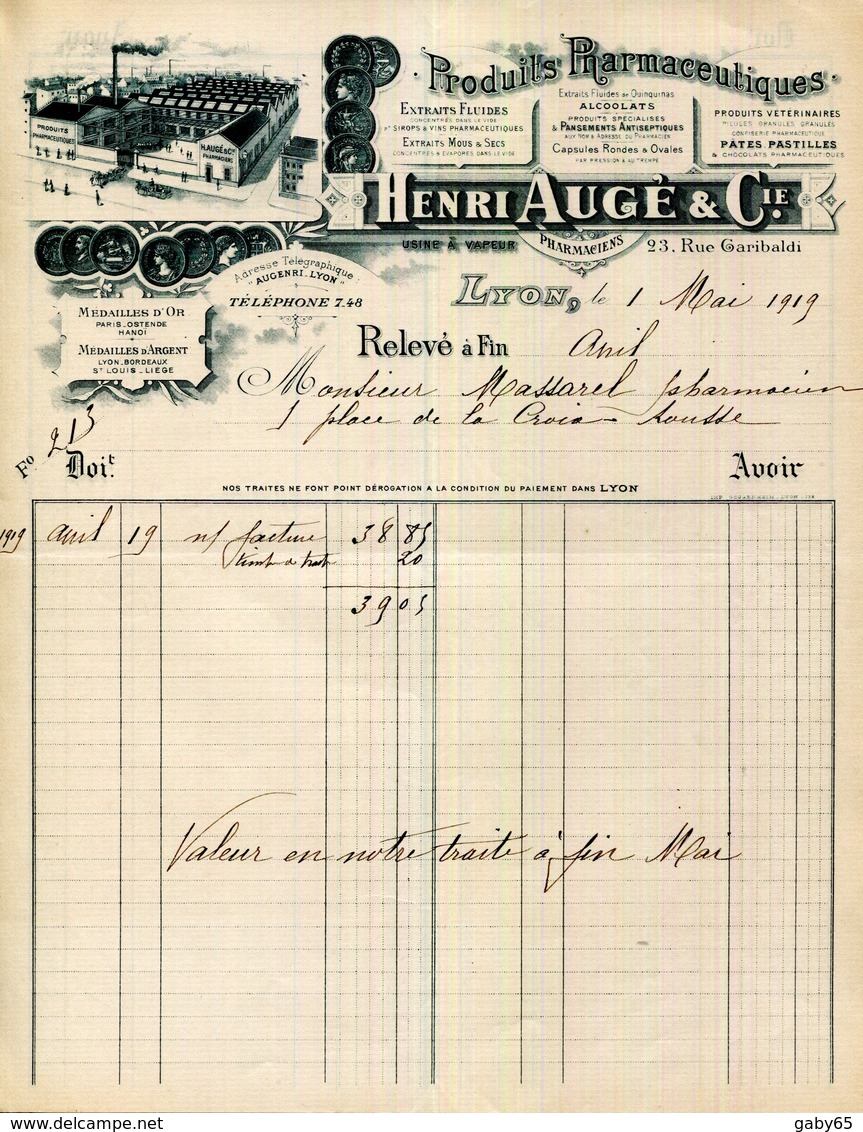 Produits Pharmaceutiques
PRODUITS PHARMACEUTIQUES
H. AUGÉ & CIE PHARMACIENS
EXTRAITS FLUIDES
CONCENTRÉS DANS LE VIDE
ET SIROPS & VINS PHARMACEUTIQUES
EXTRAITS MOUS & SECS
CONCENTRÉS & EVAPORÉS DANS LE VIDE
Extraits Fluides de Quinquinas
ALCOOLATS
PRODUITS SPÉCIALISÉS
& PANSEMENTS ANTISEPTIQUES
AUX NOM & ADRESSE DU PHARMACIEN
Capsules Rondes & Ovales
PAR PRESSION & AU TREMPÉ
PRODUITS VÉTÉRINAIRES
PILULES GRANULES GRANULÉS
CONFISERIE PHARMACEUTIQUE
PATES, PASTILLES
& CHOCOLATS PHARMACEUTIQUES
HENRI AUGÉ & CIE.
USINE A VAPEUR
PHARMACIENS
23, Rue Garibaldi
Adresse Télégraphique:
"AUGENRI_LYON"
TÉLÉPHONE 7.48
MÉDAILLES D'OR
PARIS_OSTENDE
HANOÏ
MÉDAILLES D'ARGENT
LYON_BORDEAUX
ST LOUIS_LIÈGE
LYON, le 1 Mai 1919
Relevé à Fin Avril
Monsieur Massarel pharmacien
1 place de la Croix-Rousse
Fo 213
Doit. Avoir
NOS TRAITES NE FONT POINT DÉROGATION A LA CONDITION DU PAIEMENT DANS LYON
1919 avril 19 n/ facture 38 85
timb de trait 20
39 05
Valeur en notre traite à fin Mai
delcampe.net
gaby65